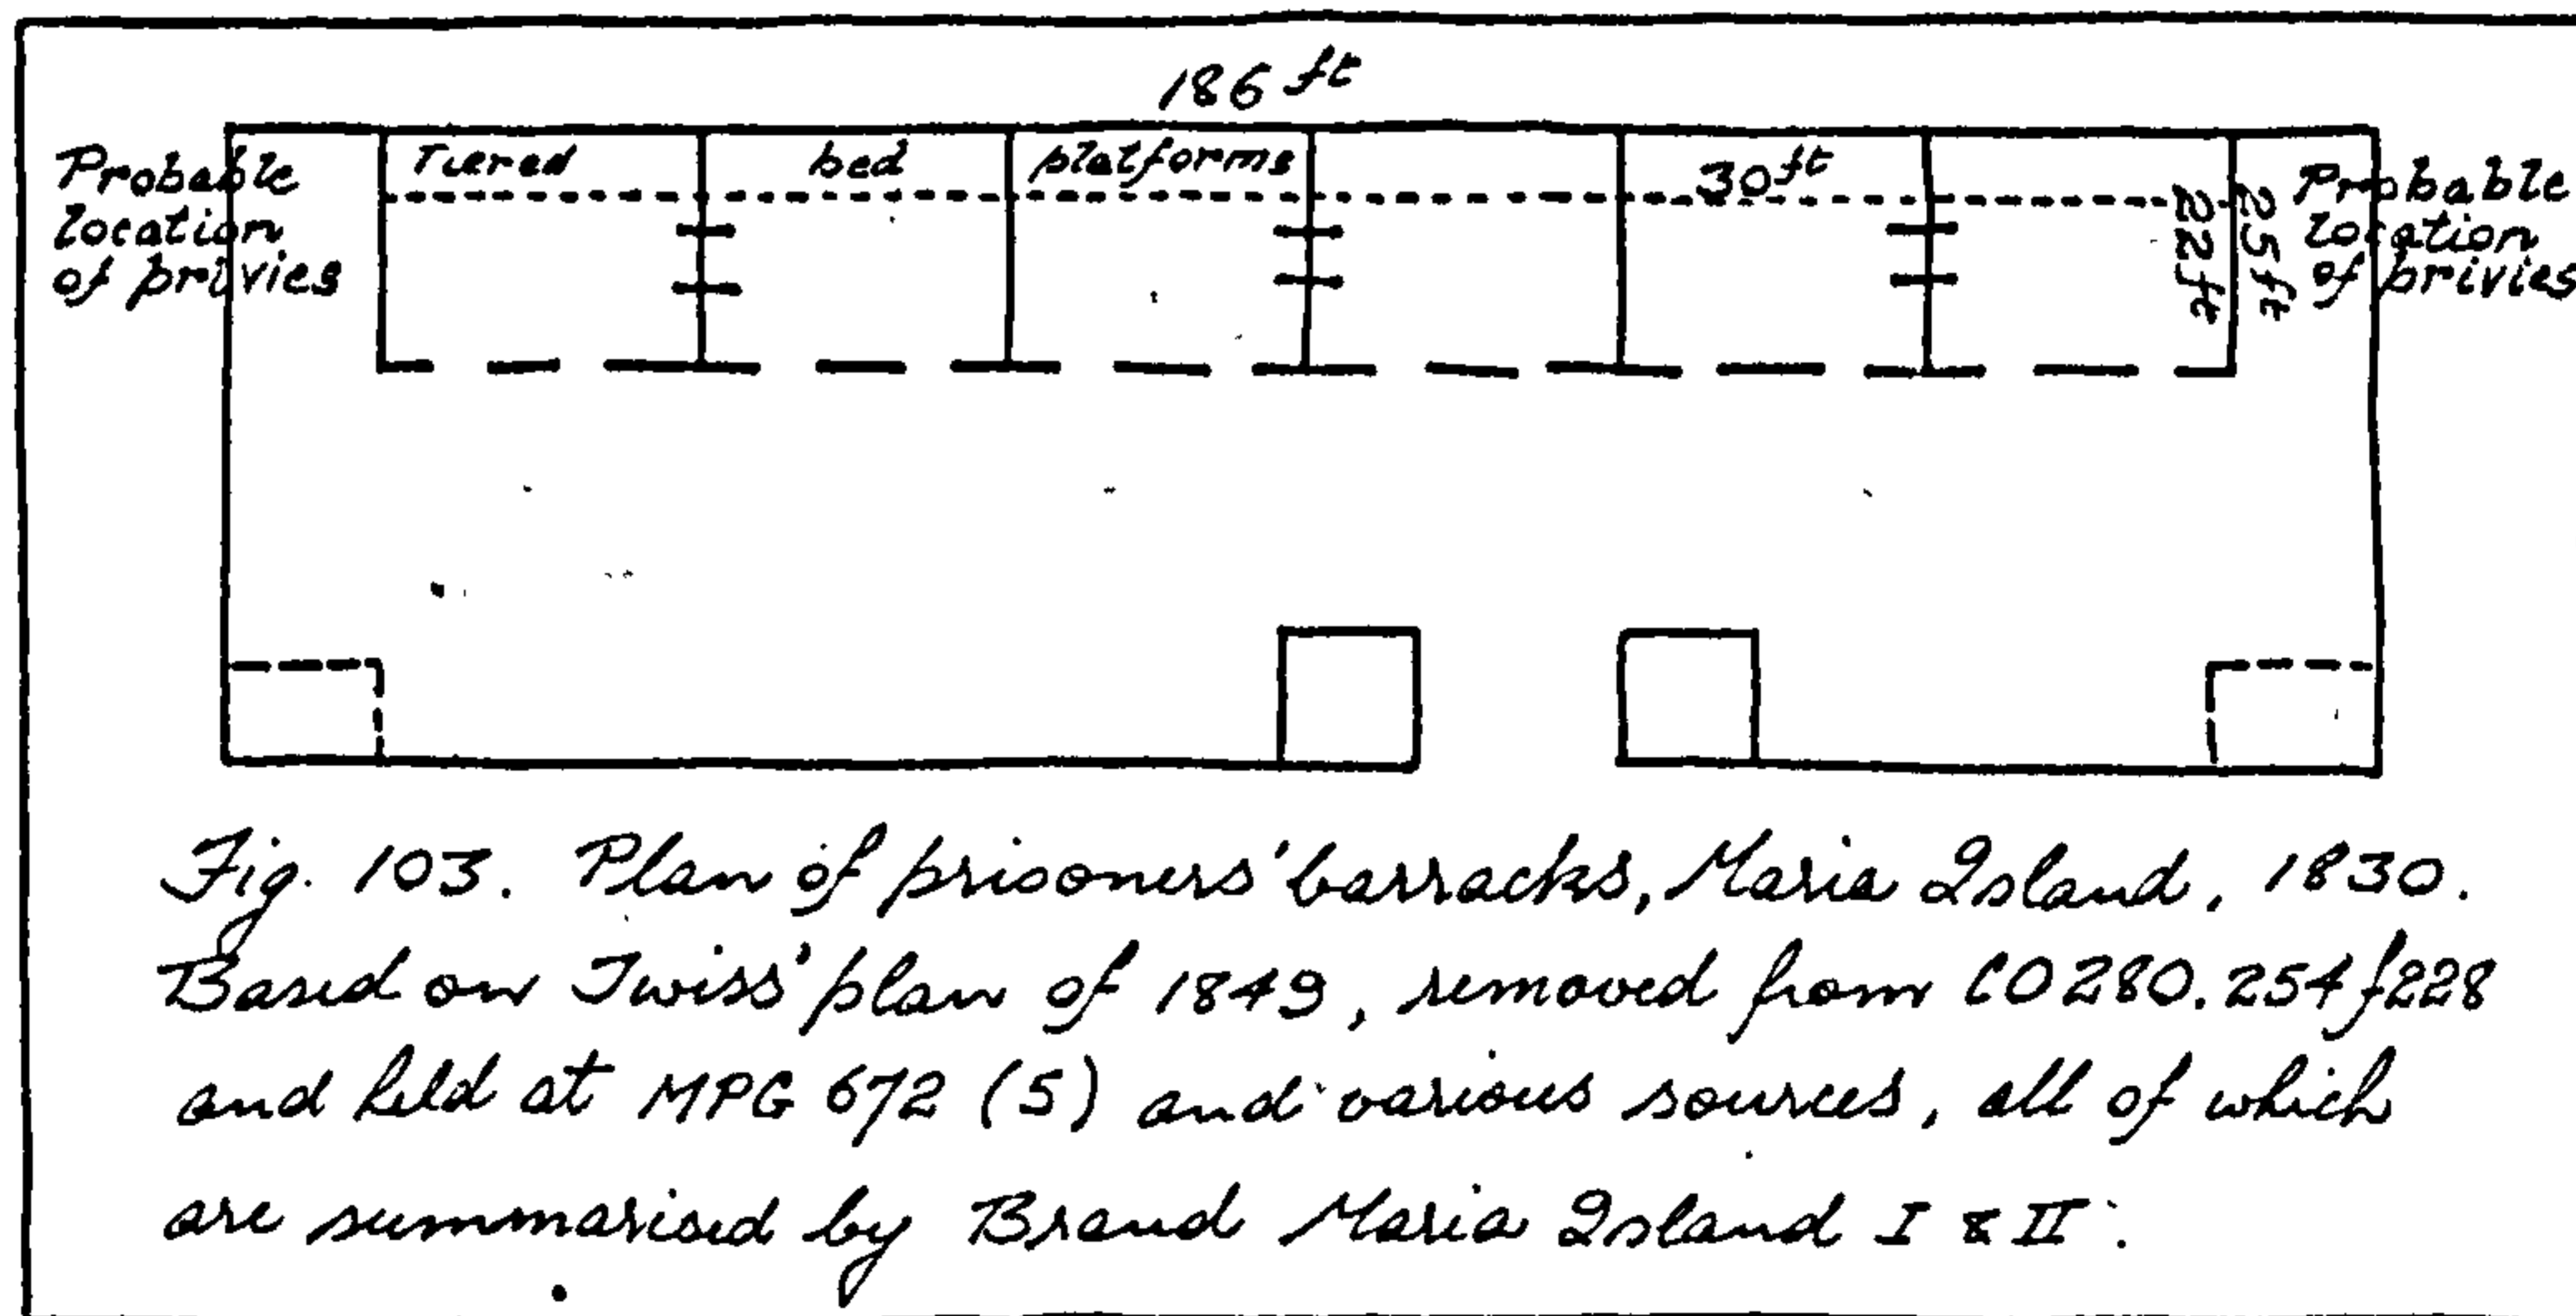 186 ft
Probable
location
of privies
Tiered bed platforms
30 ft
22 ft
25 ft
Probable
location
of privies
Fig. 103. Plan of prisoners' barracks, Maria Island, 1830.
Based on Twiss' plan of 1849, removed from CO 280.254 f228
and held at MPG 672 (5) and various sources, all of which
are summarised by Brand Maria Island I & II.